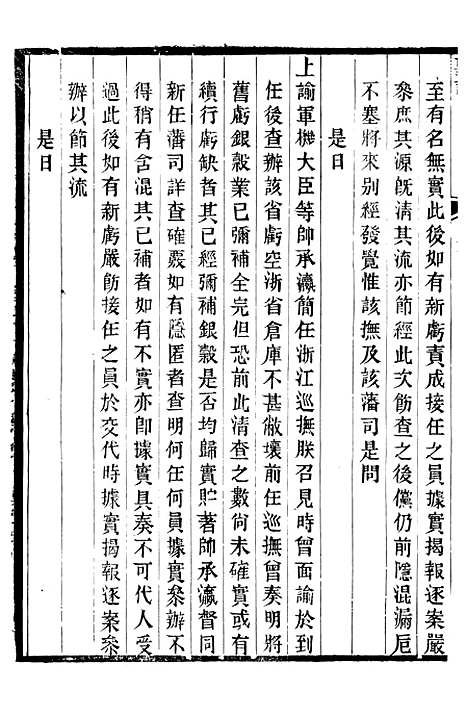 至有名無實此後如有新虧責成接任之員據實揭報逐案嚴
叅庶其源旣淸其流亦節經此次飭查之後儻仍前隱混漏卮
不塞將來别經發覺惟該撫及該藩司是問
是日
上諭軍機大臣等帥承瀛簡任浙江巡撫朕召見時曾面諭於到
任後查辦該省虧空浙省倉庫不甚敝壞前任巡撫曾奏明將
舊虧銀穀業已彌補全完但恐前此淸查之數尙未確實或有
續行虧缺者其已經彌補銀穀是否均歸實貯著帥承瀛督同
新任藩司詳查確覈如有隱匿者查明何任何員據實叅辦不
得稍有含混其已補者如有不實亦卽據實具奏不可代人受
過此後如有新虧嚴飭接任之員於交代時據實揭報逐案叅
辦以節其流
是日